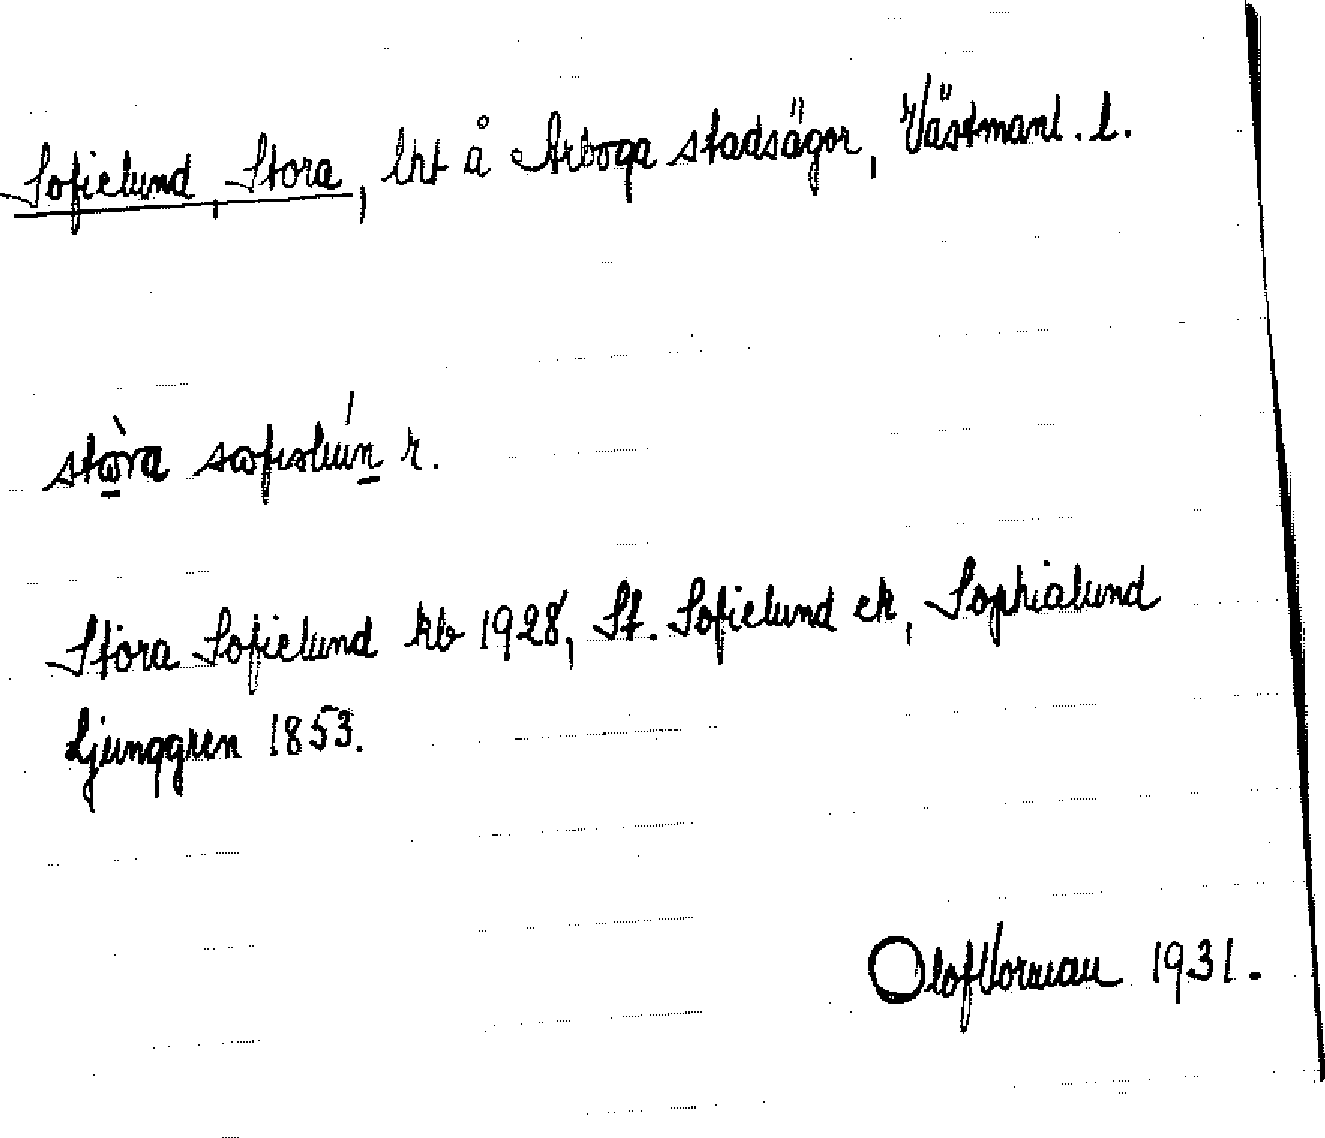 Sofielund, Stora, lht å Arboga stadsägor, Västmanl. l.
stɷ̠̀ra sɷfiəlún̠ r.
Stora Sofielund kb 1928, St. Sofielund ek, Sophialund
Ljunggren 1853.
Olof Vorman 1931.